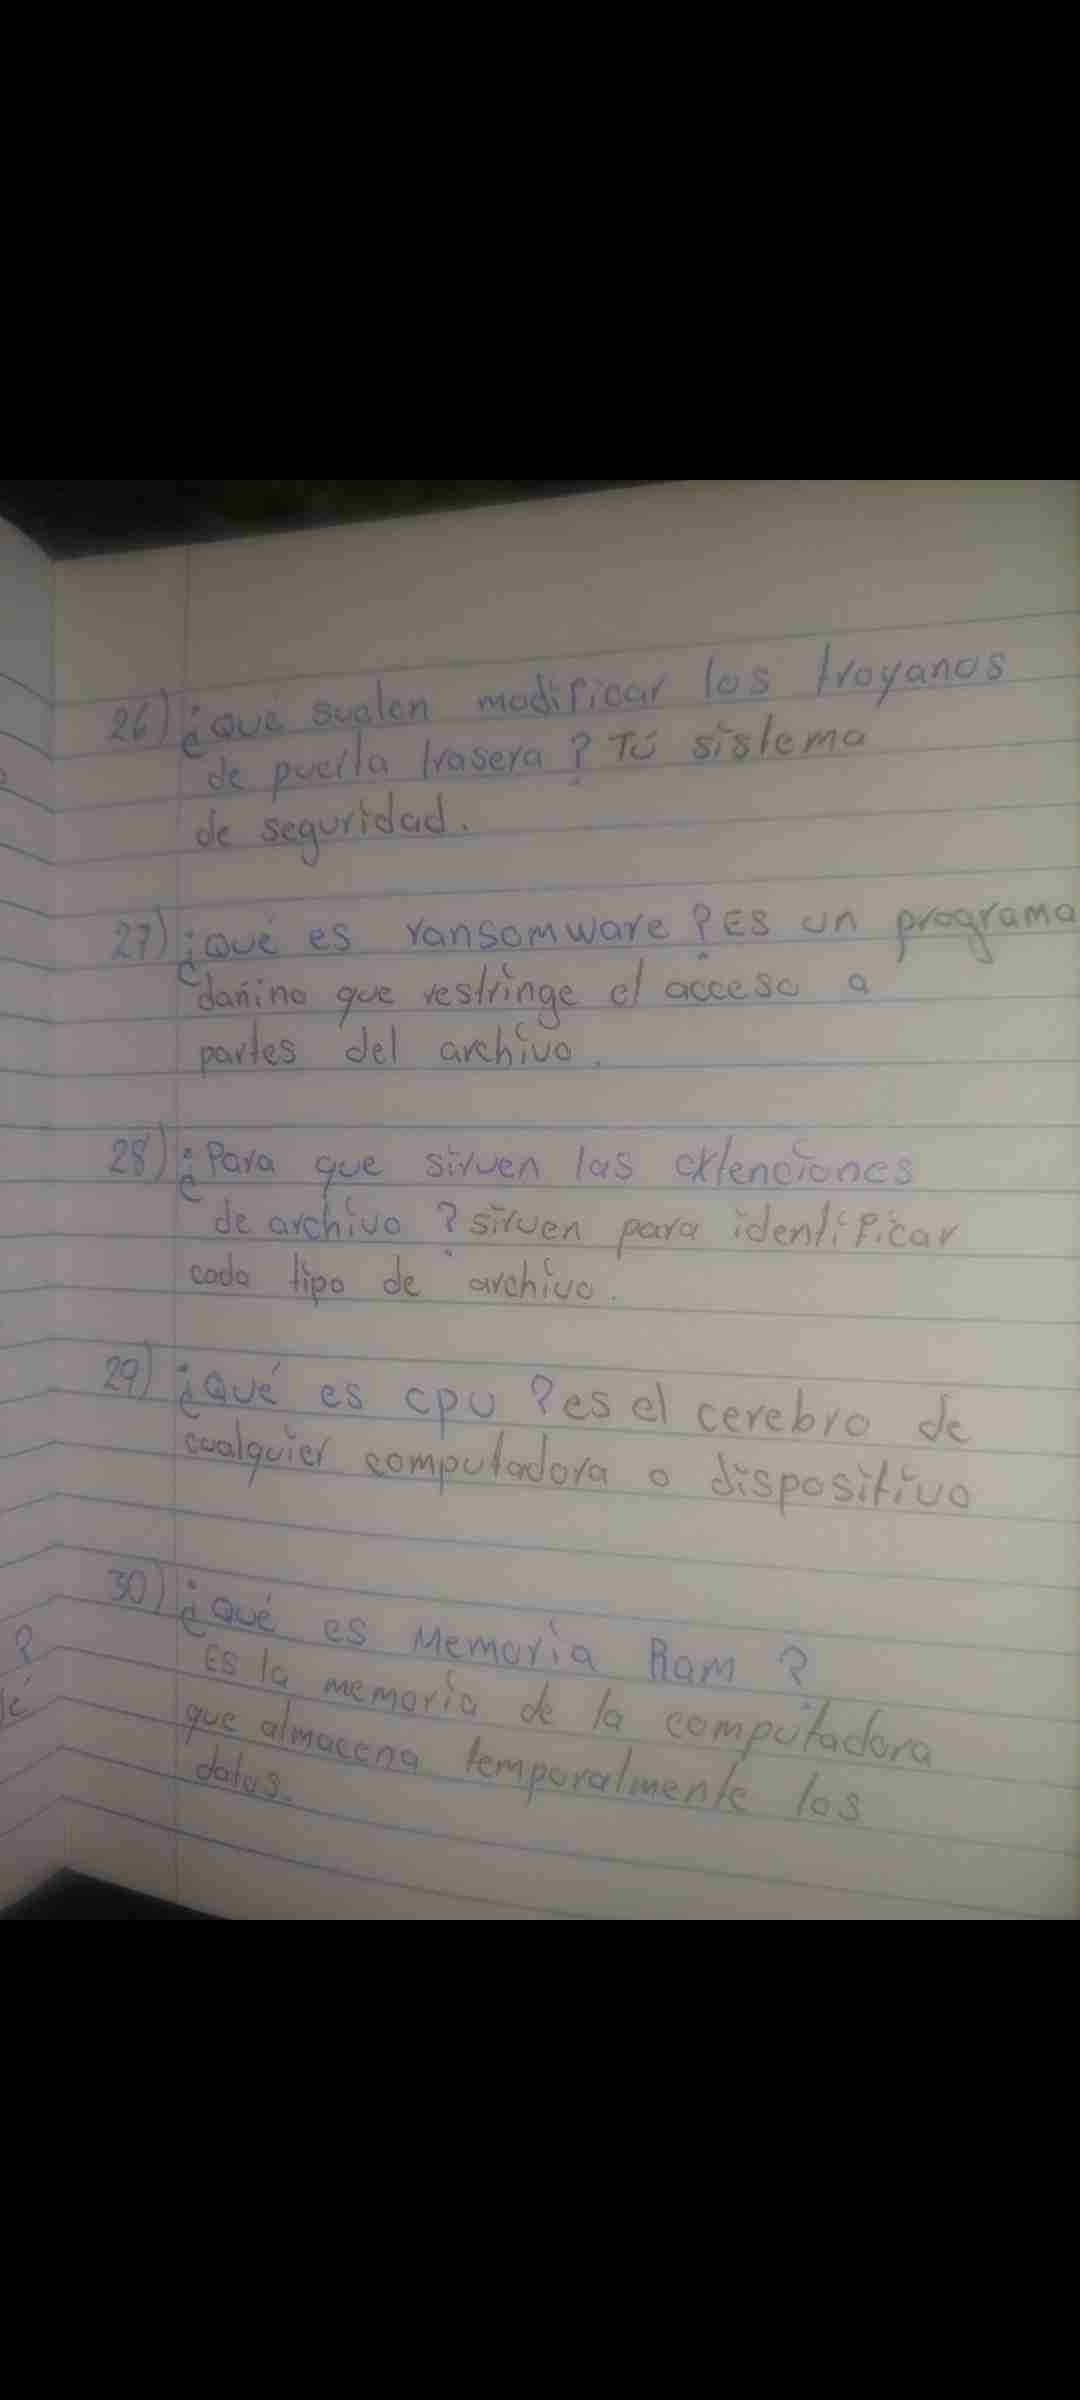 26) ¿Qué suelen modificar los troyanos
de puerta trasera? Tú sistema
de seguridad.
27) ¿Qué es ransomware? Es un programa
dañino que restringe el acceso a
partes del archivo.
28) ¿Para que sirven las extenciones
de archivo? sirven para identificar
cada tipo de archivo.
29) ¿Qué es cpu? es el cerebro de
cualquier computadora o dispositivo
30) ¿Qué es Memoria Ram?
Es la memoria de la computadora
que almacena temporalmente los
datos.